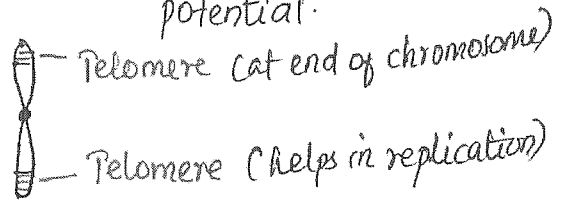 potential.
Telomere (at end of chromosome)
Telomere (helps in replication)